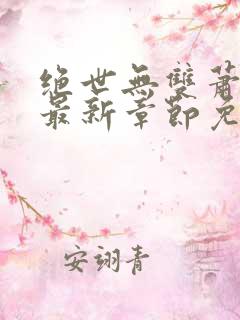 绝世無雙蕭
最新章節免
安翊青